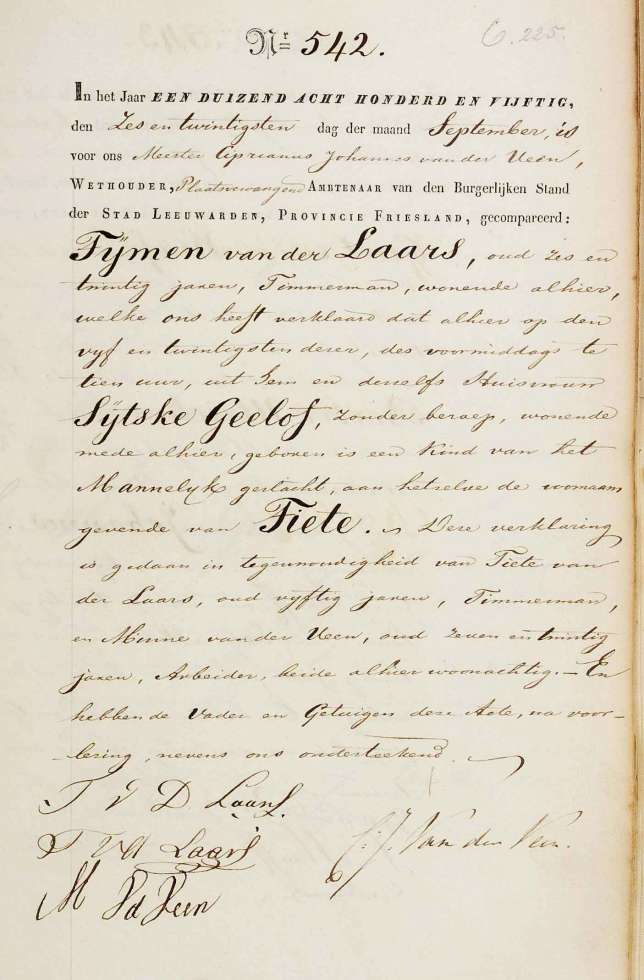 Nr 542.
6.225.
In het Jaar EEN DUIZEND ACHT HONDERD EN VIJFTIG,
den Zes en twintigsten dag der maand September, is
voor ons Meester Ciprianus Johannes van der Veen,
WETHOUDER, Plaatsvervangend AMBTENAAR van den Burgerlijken Stand
der STAD LEEUWARDEN, PROVINCIE FRIESLAND, gecompareerd:
Tijmen van der Laars, oud zes en
twintig jaren, Timmerman, wonende alhier,
welke ons heeft verklaard dat alhier op den
vyf en twintigsten dezer, des voormiddags te
tien uur, uit hem en deszelfs Huisvrouw
Sijtske Geelof, zonder beroep, wonende
mede alhier, geboren is een Kind van het
Mannelyk geslacht, aan hetzelve de voornaam
gevende van Fiete. Deze verklaring
is gedaan in tegenwoordigheid van Fiete van
der Laars, oud vyftig jaren, Timmerman,
en Minne van der Veen, oud zeven en twintig
jaren, Arbeider, beide alhier woonachtig. — En
hebben de Vader en Getuigen deze Acte, na voor-
-lezing, nevens ons onderteekend.
T V D Laars.
F VD Laars
C. J. Van der Veen.
M Vd Veen